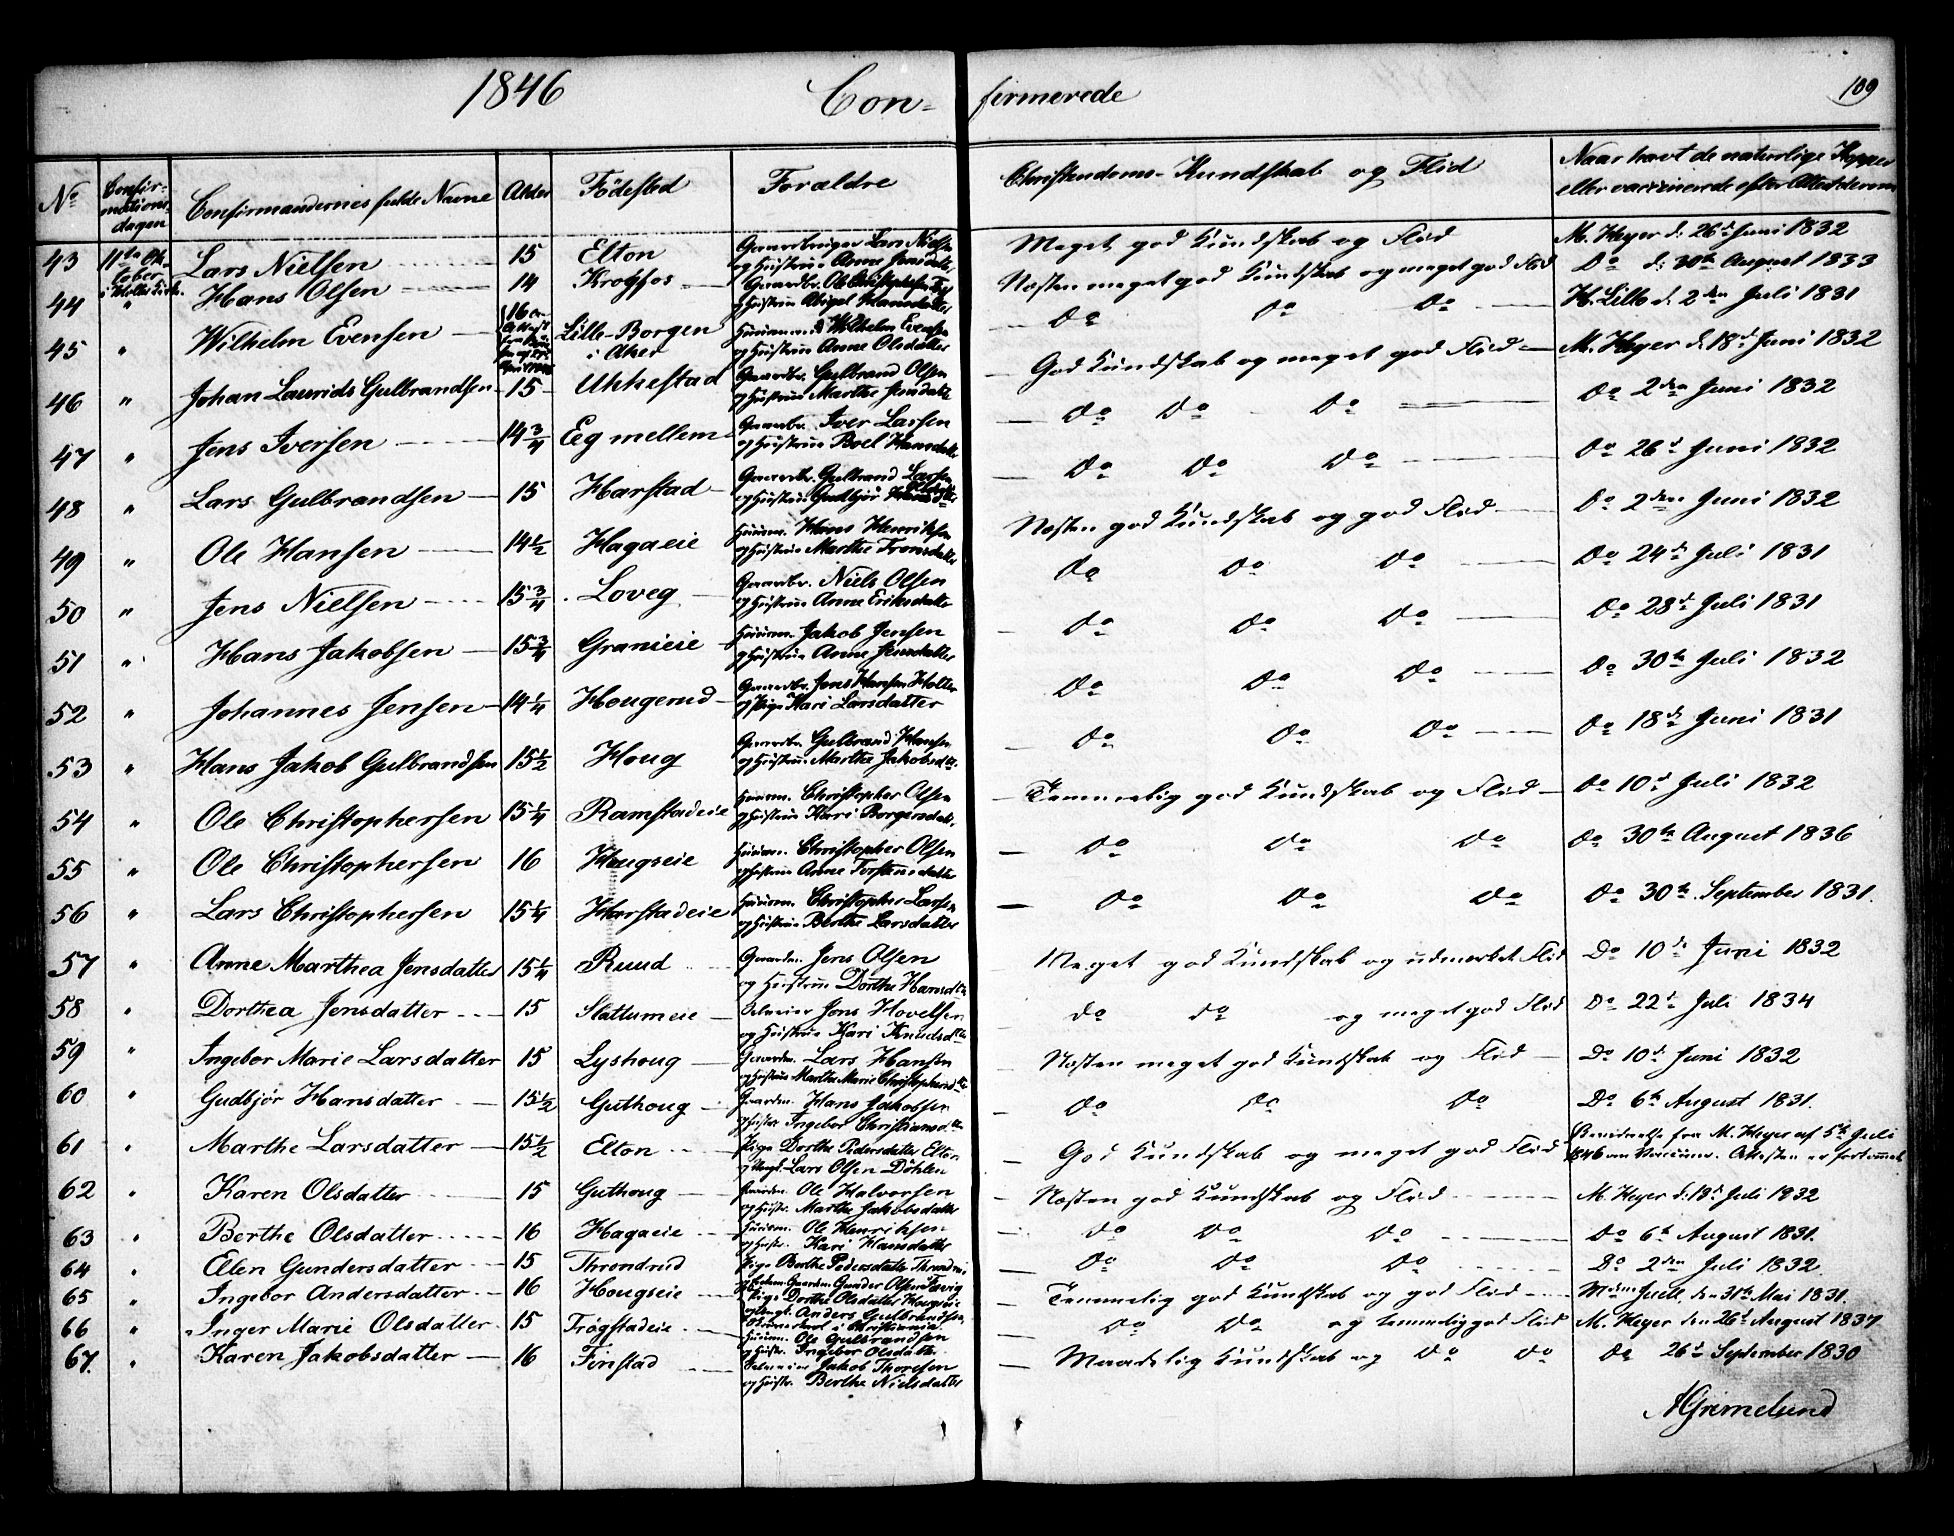 1846 Con- firmerede 109
No Confirmationsdagen Confirmandernes fulde Navne Alder Fødested Forældre Christendoms-Kundskab og Flid Naar havt de naturlige Kopper eller vaccinerede efter Attest derom
43 11te October Lars Nielsen 15 Elton Gaardbruger Lars Nielsen og Hustrue Anne Jensdatter Meget god Kundskab og Flid M. Heyer d. 26de Juni 1832
44 " Hans Olsen 14 Krogfos Gaardbr. Ole Christophersen og Hustrue Abigel Hansdatter Næsten meget god Kundskab og meget god Flid Do d. 20de August 1833
45 " Wilhelm Evensen 16 Lille-Borgen i Aker Huusmand Wilhelm Evensen og Hustrue Anne Olsdatter Do Do Do H. Lille d. 2den Juli 1831
46 " Johan Laurids Gulbrandsen 15 Ukkestad Gaardbr. Gulbrand Olsen og Hustrue Marthe Jensdatter God Kundskab og meget god Flid M. Heyer d. 18de Juni 1832
47 " Jens Iversen 14 3/4 Eeg mellem Gaardbr. Iver Larsen og Hustrue Boel Hansdatter Do Do Do Do 2den Juni 1832
48 " Lars Gulbrandsen 15 Harstad Gaardbr. Gulbrand Larsen og Hustrue Gudbjør Do Do Do Do 26de Juni 1832
49 " Ole Hansen 14 1/2 Hagaeie Huusm. Hans Henriksen og Hustrue Marthe Fransdatter Næsten god Kundskab og god Flid Do 2den Juni 1832
50 " Jens Nielsen 15 3/4 Loveg Gaardbr. Niels Olsen og Hustrue Anne Eriksdatter Do Do Do Do 24de Juli 1831
51 " Hans Jakobsen 15 3/4 Granieie Huusm. Jakob Jensen og Hustrue Anne Jensdatter Do Do Do Do 28de Juli 1831
52 " Johannes Jensen 14 1/4 Hougerud Gaardbr. Jens Hansen Holter og Pige Kari Larsdatter Do Do Do Do 30te Juli 1832
53 " Hans Jakob Gulbrandsen 15 1/2 Houg Gaardbr. Gulbrand Hansen og Hustrue Marthe Jakobsdtr. Do Do Do Do 18de Juni 1831
54 " Ole Christophersen 15 1/4 Ramstadeie Huusm. Christopher Olsen og Hustrue Kari Borgersdatr. Temmelig god Kundskab og Flid Do 10de Juli 1832
55 " Ole Christophersen 16 Hougseie Huusm. Christopher Olsen og Hustrue Anne Torstensdatter Do Do Do Do 30te August 1836
56 " Lars Christophersen 15 1/4 Harstadeie Huusm. Christopher Larsen og Hustrue Berthe Larsdatter Do Do Do Do 30te September 1831.
57 " Anne Marthea Jensdatter 15 1/4 Ruud Gaardm. Jens Olsen og Hustrue Dorthe Hansdtr Meget god Kundskab og udmærket Flid Do 10de Juni 1832
58 " Dorthea Jensdatter 15 Slattumeie Selveier Jens Hovelsen og Hustrue Kari Knudsdtr do do og meget god Flid Do 22de Juli 1834
59 " Ingebor Marie Larsdatter 15 Lyshoug Gaardm. Lars Hansen og Hustrue Marthe Marie Christophersdtr Næsten meget god Kundskab og Flid Do 10de Juni 1832
60 " Gudbjør Hansdatter 15 1/2 Guthoug Gaardm. Hans Jakobsen og Hustr. Ingebor Christiansdtr Do Do Do Do 6te August 1831.
61 " Marthe Larsdatter 15 1/2 Elton Pige Dorthe Pedersdatter Elton og Ungk. Lars Olsen Döhlen God Kundskab og meget god Flid Bevidnelse fra M. Heyer af 5te Juli 1846 om Vaccinen. Attesten er forkommet
62 " Karen Olsdatter 15 Guthoug Gaardm. Ole Halvorsen og Hustr. Marthe Jakobsdatter Næsten god Kundskab og Flid M. Heyer d. 19de Juli 1832
63 " Berthe Olsdatter 16 Hagaeie Huusm. Ole Henriksen og Hustr. Kari Hansdatter Do Do Do Do 6te August 1831.
64 " Elen Gundersdatter 15 Throndrud Pige Berthe Pedersdatter Throndrud og Gaardm. Gunder Olsen Do Do Do Do 2den Juli 1832.
65 " Ingebor Andersdatter 16 Hougseie Pige Dorthe Olsdatter Hougseie og Ungk. Anders Gulbrandsen Temmelig god Kundskab og god Flid Juell, den 31te Mai 1831.
66 " Inger Marie Olsdatter 15 Frøgstadeie Huusm. Ole Gulbrandsen og Hustr. Ingebor Olsdatter Do Do og temmelig god Flid M. Heyer den 26de August 1837
67. Karen Jakobsdatter 16 Finstad Selveier Jakob Thoresen og Hustr. Berthe Nielsdatter Maadelig Kundskab og Do Do Do 26de September 1830
AGrimelund